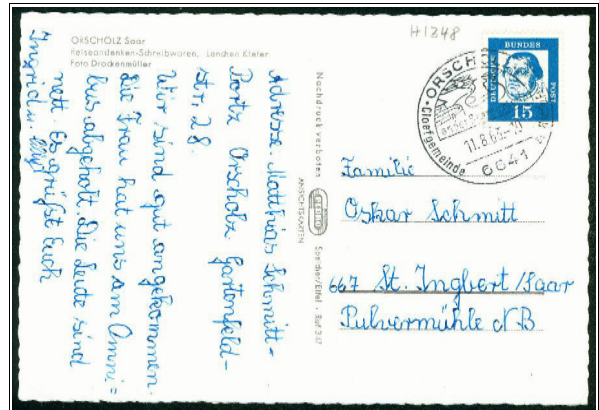 H1348
ORSCHOLZ Saar
Reiseandenken-Schreibwaren, Lenchen Kiefer
Foto Drockenmüller
Adresse Matthias Schmitt-
Portz Orscholz Gartenfeld-
str. 28.
Wir sind gut angekommen.
Die Frau hat uns am Omni=
bus abgeholt. Die Leute sind
nett. Es grüßt Euch
Ingrid u.
Nachdruck verboten
ANSICHTSKARTEN
Speicher/Eifel · Ruf 347
DEUTSCHE
BUNDES
POST
15
ORSCHOLZ
Cloefgemeinde
11.8.63
6641
Familie
Oskar Schmitt
667 St. Ingbert/Saar
Pulvermühle NB